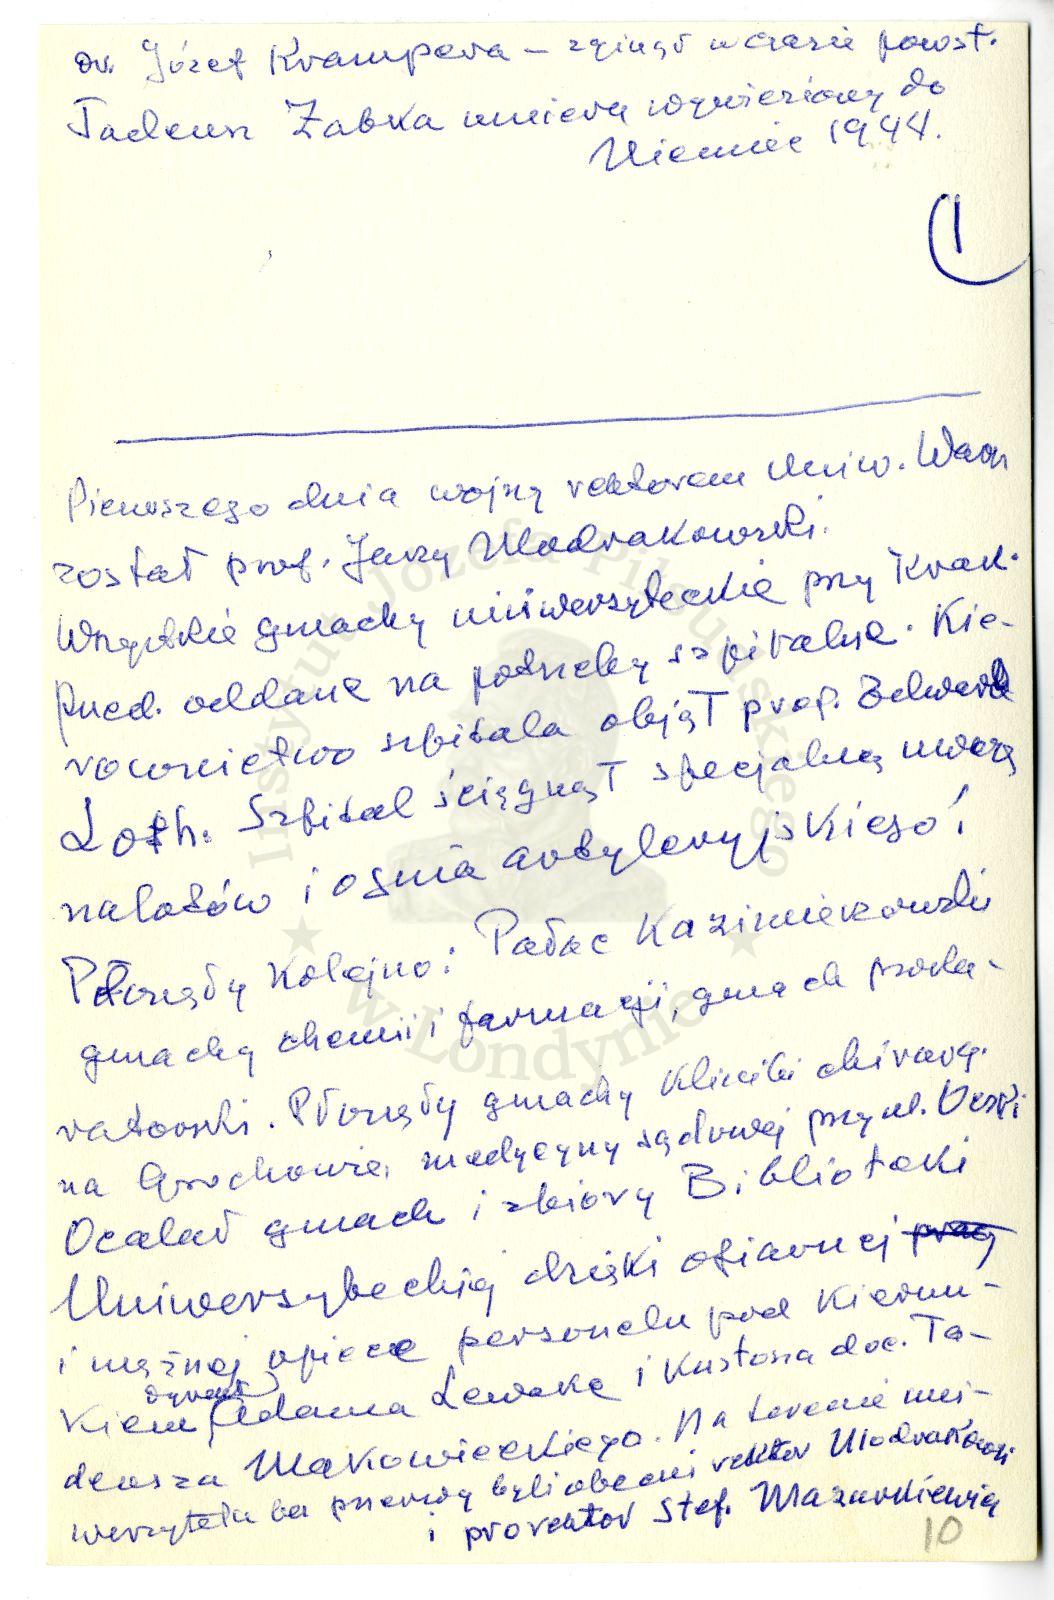 dr. Józef Krampera – zginął w czasie powst.
Tadeusz Żabka umiera wywieziony do
Niemiec 1944.
1
Pierwszego dnia wojny rektorem Uniw. Warsz
został prof. Jerzy Modrakowski.
Wszystkie gmachy uniwersyteckie przy Krak.
Przed. oddane na potrzeby szpitalne. Kie-
rownictwo szpitala objął prof. Edward
Loth. Szpital ściągnął specjalną uwagę
nalotów i ognia artyleryjskiego!
Płonęły kolejno: Pałac Kazimierzowski
gmachy chemii i farmacji, gmach poda-
ratorski. Płonęły gmachy Kliniki chirurg.
na Grochowie, medycyny sądowej przy ul. Oczki
Ocalał gmach i zbiory Biblioteki
Uniwersyteckiej dzięki ofiarnej pracy
i mężnej opiece personelu pod kierun-
dyrekt
kiem Adama Lewaka i kustosza doc. Ta-
deusza Makowieckiego. Na terenie uni-
wersytetu bez przerwy byli obecni rektor Modrakowski
i prorektor Stef. Mazurkiewicz
10
Instytut Józefa Piłsudskiego
w Londynie